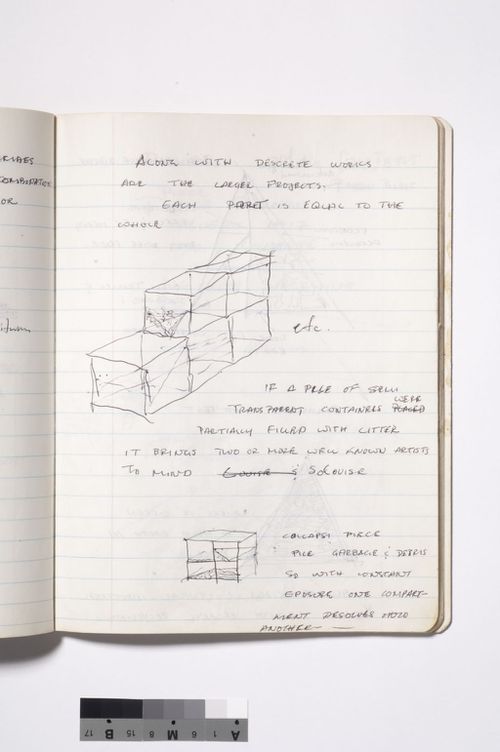 RIBES
COMBINATION
OR
ALONG WITH DESCRETE WORKS
ARE THE LARGER PROJECTS.
EACH PART IS EQUAL TO THE
WHOLE
etc.
IF A PILE OF SEMI
WERE
TRANSPARENT CONTAINERS PLACED
PARTIALLY FILLED WITH LITTER
IT BRINGS TWO OR MORE WELL KNOWN ARTISTS
TO MIND LOUISE & S&LOUISE
COLLAPSI PIECE
PILE GARBAGE & DEBRIS
SO WITH CONSTANT
EPOSURE ONE COMPART-
MENT DESOLVES INTO
ANOTHER —
17 B 15 8 M A 1